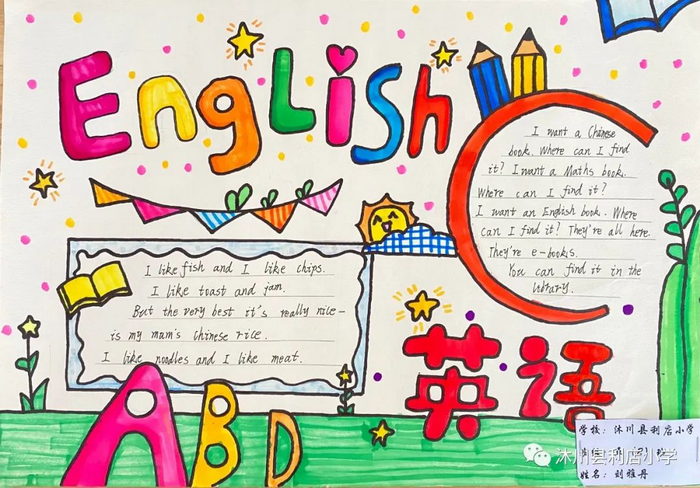 English
I want a Chinese
book. Where can I find
it? I want a Maths book.
Where can I find it?
I want an English book. Where
can I find it? They're all here.
They're e-books.
You can find it in the
library.
I like fish and I like chips.
I like toast and jam.
But the very best it's really nice—
is my mum's Chinese rice.
I like noodles and I like meat.
英语
ABD
学校：沐川县利店小学
姓名：刘雅丹
沐川县利店小学